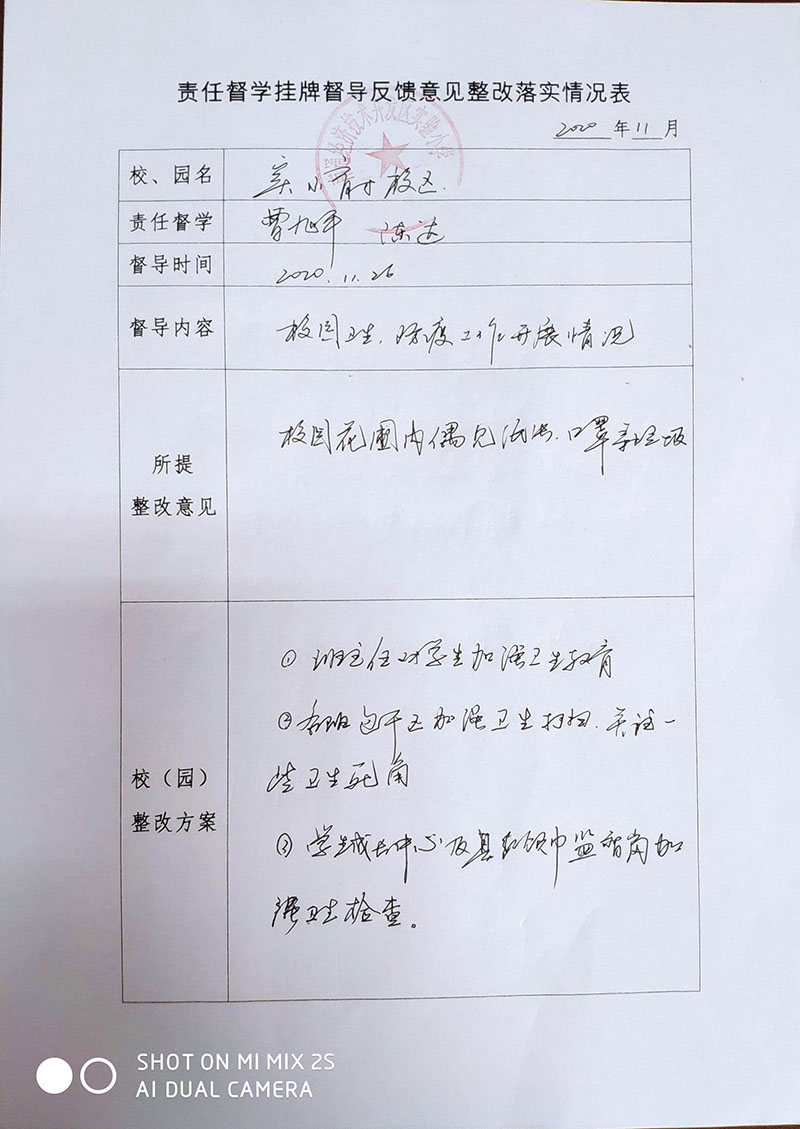 责任督学挂牌督导反馈意见整改落实情况表
2020 年 11 月
经济技术开发区实验小学
校、园名 实小 校区.
责任督学 曹旭平 陈达
督导时间 2020.11.26
督导内容 校园卫生.防疫工作开展情况
所提
整改意见
校园花圃内偶见 口罩等垃圾
校(园)
整改方案
① 班主任对学生加强卫生教育
②各班包干区加强卫生打扫.关注一
些卫生死角
③ 学生成长中心及 红领巾监督岗加
强卫生检查。
SHOT ON MI MIX 2S
AI DUAL CAMERA